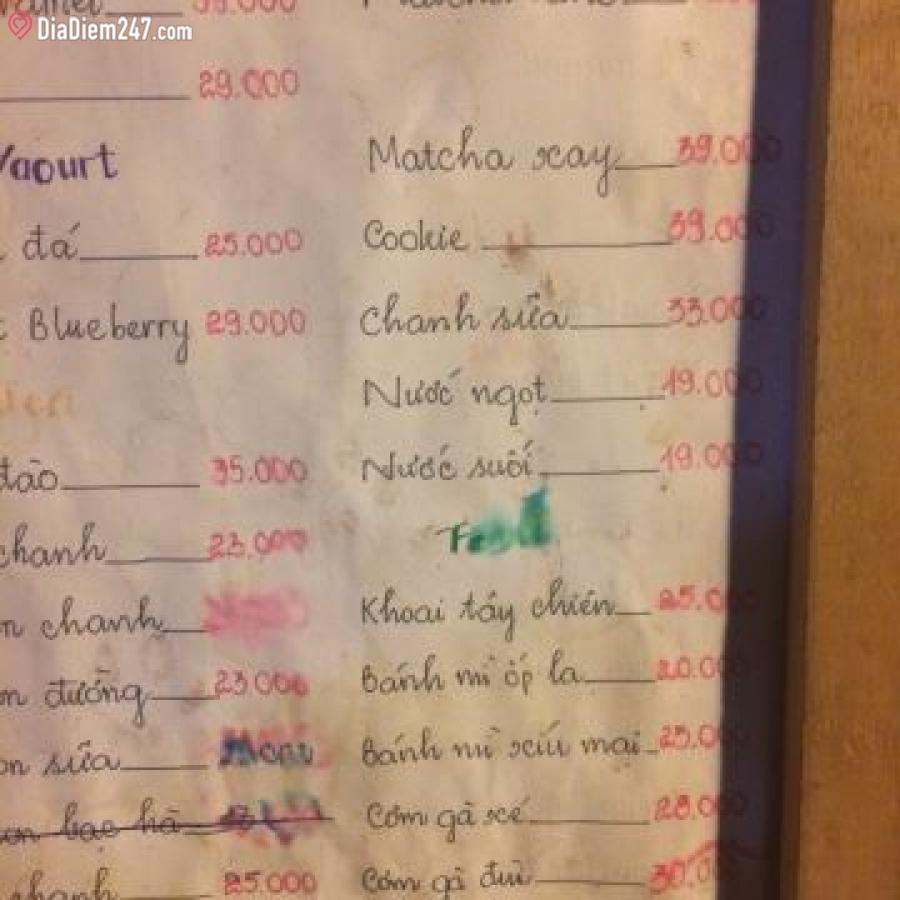 DiaDiem247.com
29.000
Yaourt
đá 25.000
Blueberry 29.000
đào 35.000
chanh 23.000
chanh
đường 23.000
sữa
bạc hà
chanh 25.000
Matcha xay 39.000
Cookie 39.000
Chanh sữa 33.000
Nước ngọt 19.000
Nước suối 19.000
Food
Khoai tây chiên 25.0
Bánh mì ốp la 20.00
Bánh mì xíu mại 25.0
Cơm gà xé 28.000
Cơm gà đùi 30.0